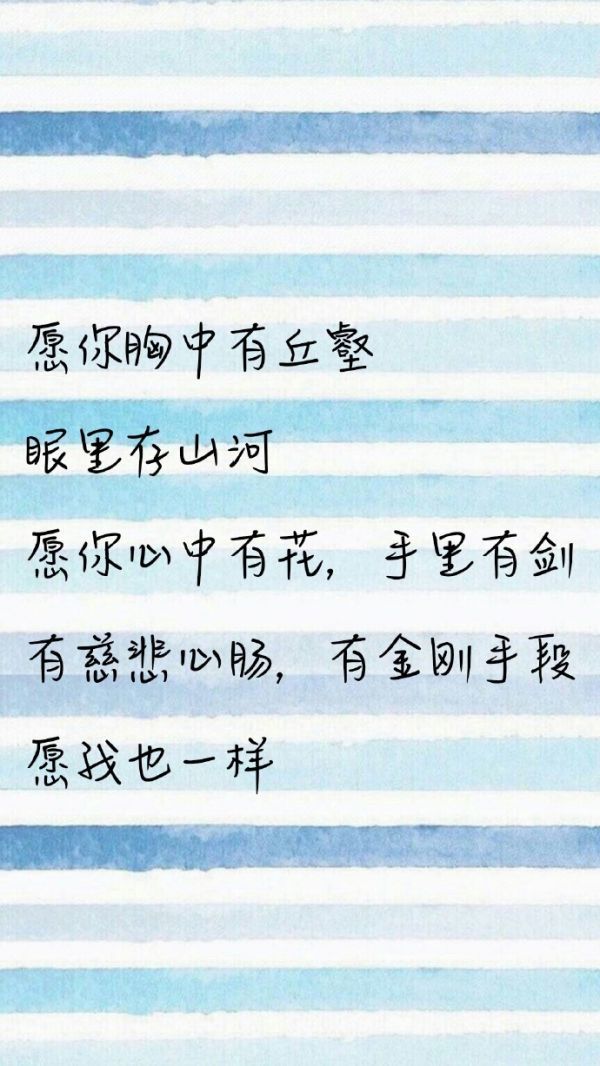 愿你胸中有丘壑
眼里存山河
愿你心中有花，手里有剑
有慈悲心肠，有金刚手段
愿我也一样